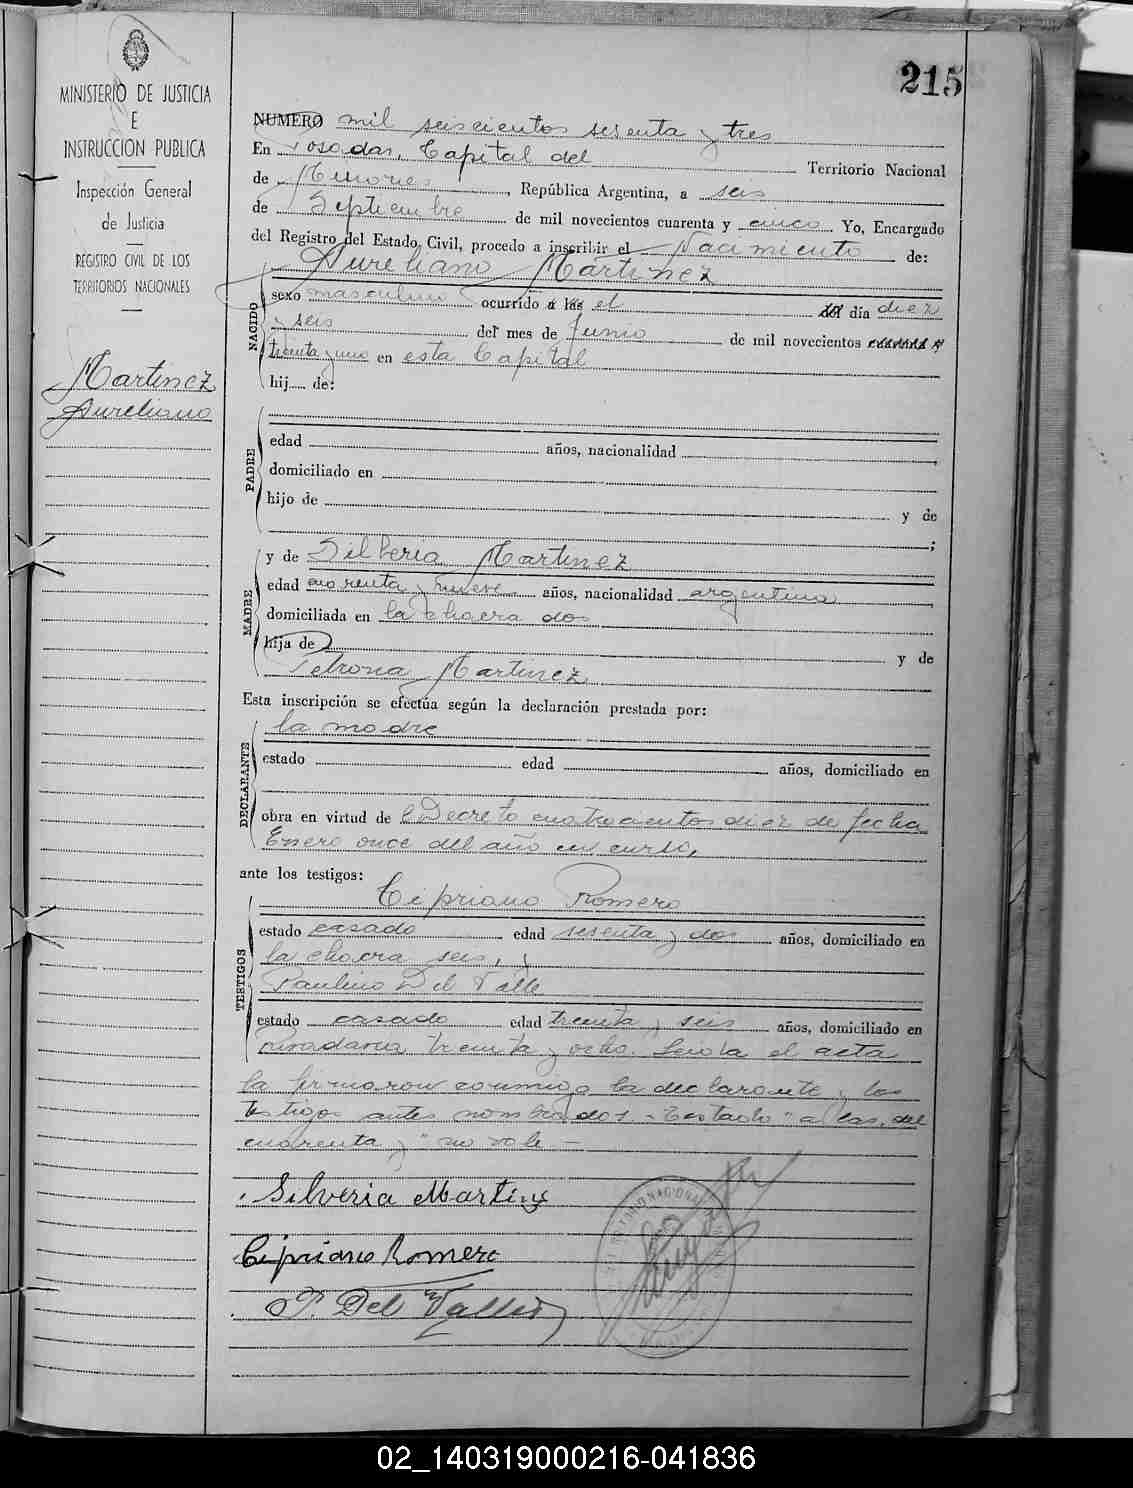 215
MINISTERIO DE JUSTICIA
E
INSTRUCCION PUBLICA
Inspección General
de Justicia
REGISTRO CIVIL DE LOS
TERRITORIOS NACIONALES
Martinez
Aureliano
NUMERO mil seiscientos sesenta y tres
En Posadas, Capital del Territorio Nacional
de Misiones, República Argentina, a seis
de Septiembre de mil novecientos cuarenta y cinco Yo, Encargado
del Registro del Estado Civil, procedo a inscribir el Nacimiento de:
Aureliano Martinez
NACIDO
sexo masculino ocurrido a las el del día diez
y seis del mes de Junio de mil novecientos cuarenta y
treinta y uno en esta Capital
hij de:
PADRE
edad años, nacionalidad
domiciliado en
hijo de y de
;
MADRE
y de Silberia Martinez
edad cuarenta y nueve años, nacionalidad argentina
domiciliada en la chacra dos
hija de y de
Petrona Martinez
Esta inscripción se efectúa según la declaración prestada por:
DECLARANTE
la madre
estado edad años, domiciliado en
obra en virtud de Decreto cuatrocientos diez de fecha
Enero once del año en curso,
ante los testigos:
TESTIGOS
Cipriano Romero
estado casado edad sesenta y dos años, domiciliado en
la chacra seis, y
Paulino Del Valle
estado casado edad treinta y seis años, domiciliado en
Rivadavia treinta y ocho. Leida el acta
la firmaron conmigo la declarante y los
testigos antes nombrados - Testado "a las, del
cuarenta y" no vale -
Silveria Martinez
Cipriano Romero
P. Del Valle
02_140319000216-041836